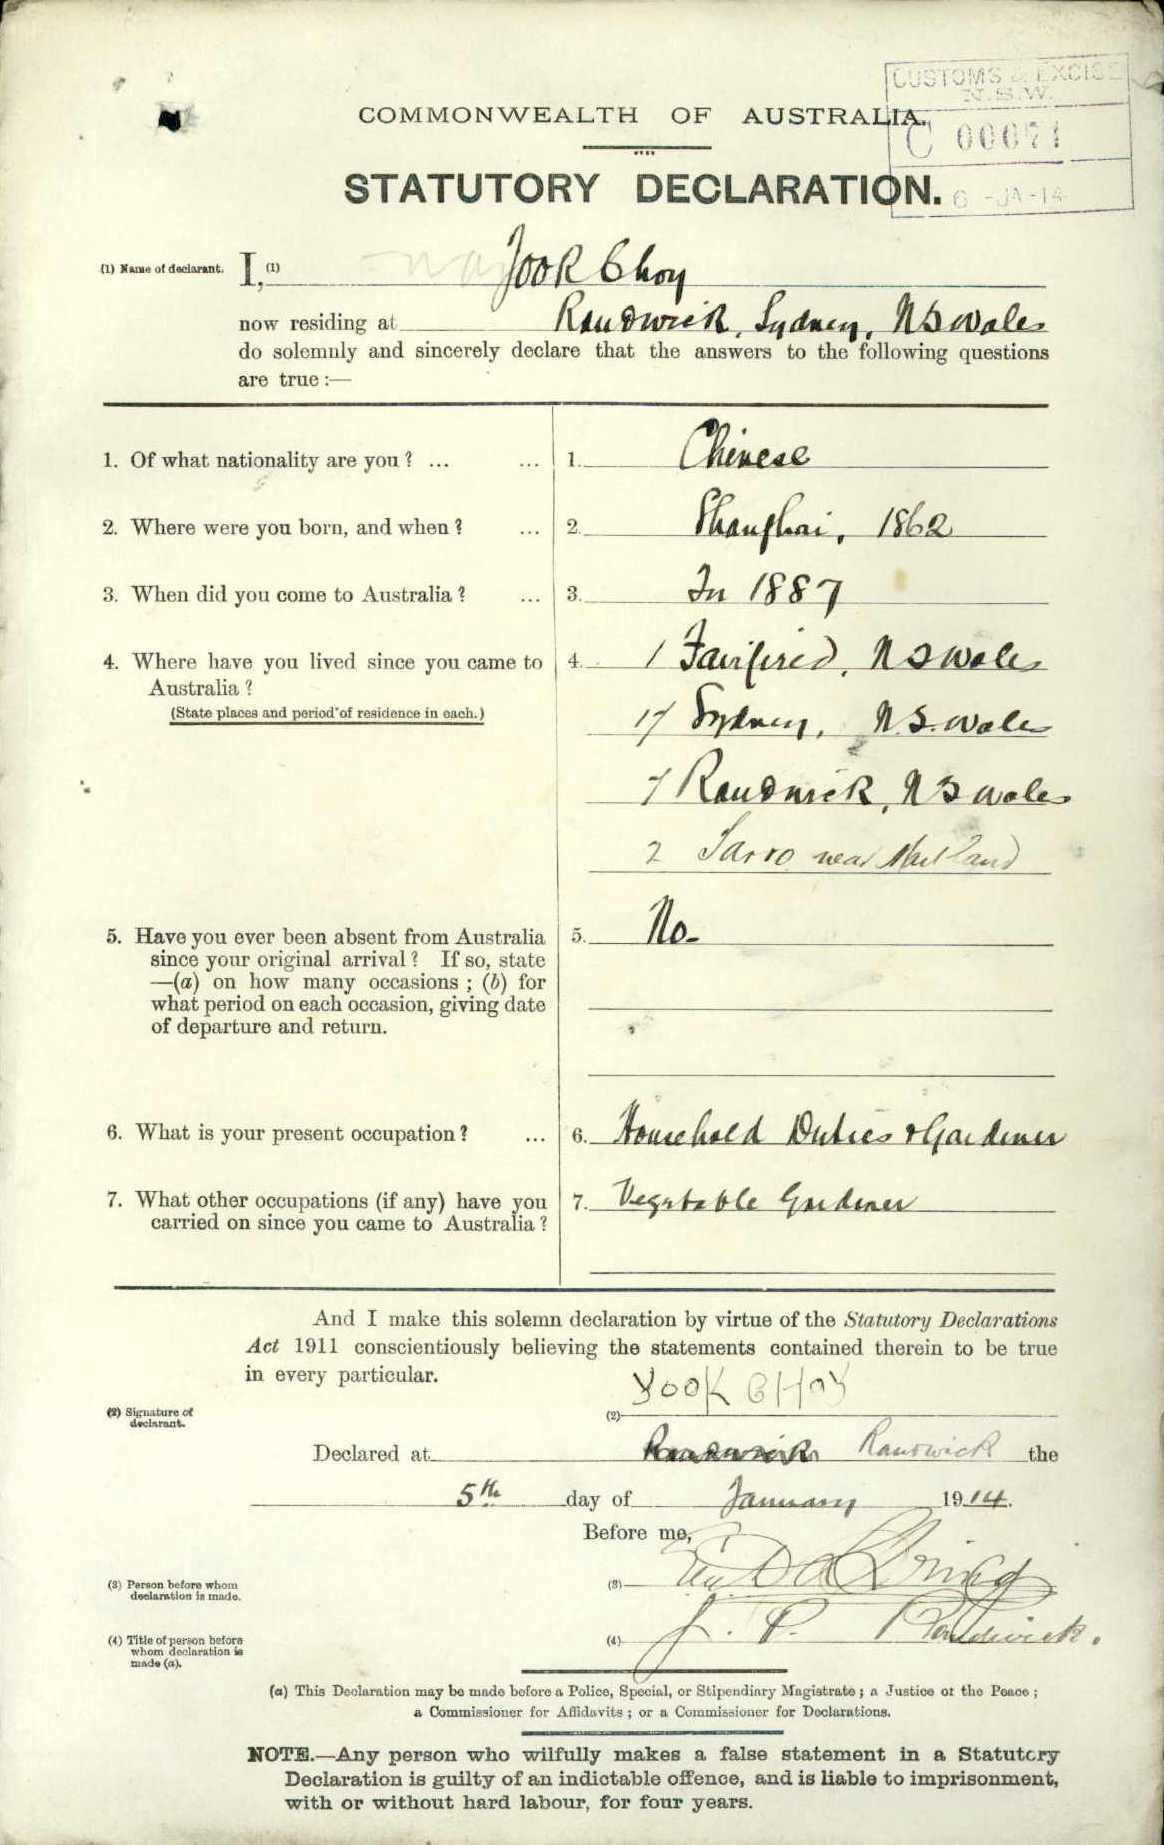 CUSTOMS & EXCISE
N.S.W.
COMMONWEALTH OF AUSTRALIA.
C 00071
STATUTORY DECLARATION.
6 -JA-14
(1) Name of declarant. I, (1) Yook Choy
now residing at Randwick, Sydney, N S Wales
do solemnly and sincerely declare that the answers to the following questions
are true :—
1. Of what nationality are you ? ... ... 1. Chinese
2. Where were you born, and when ? ... 2. Shanghai, 1862
3. When did you come to Australia ? ... 3. In 1887
4. Where have you lived since you came to 4. 1 Fairfield, N S Wales
Australia ?
(State places and period of residence in each.)
17 Sydney, N.S. Wales
7 Randwick, N S Wales
2 Tarro near Maitland
5. Have you ever been absent from Australia 5. No-
since your original arrival ? If so, state
—(a) on how many occasions ; (b) for
what period on each occasion, giving date
of departure and return.
6. What is your present occupation ? ... 6. Household Duties & Gardener
7. What other occupations (if any) have you 7. Vegetable Gardener
carried on since you came to Australia ?
And I make this solemn declaration by virtue of the Statutory Declarations
Act 1911 conscientiously believing the statements contained therein to be true
in every particular.
(2) Signature of
declarant.
(2) YOOK CHOY
Declared at Randwick Randwick the
5th day of January 1914.
Before me,
(3) Person before whom
declaration is made.
(3)
(4) Title of person before
whom declaration is
made (a).
(4) J. P. Randwick.
(a) This Declaration may be made before a Police, Special, or Stipendiary Magistrate ; a Justice of the Peace ;
a Commissioner for Affidavits ; or a Commissioner for Declarations.
NOTE.—Any person who wilfully makes a false statement in a Statutory
Declaration is guilty of an indictable offence, and is liable to imprisonment,
with or without hard labour, for four years.